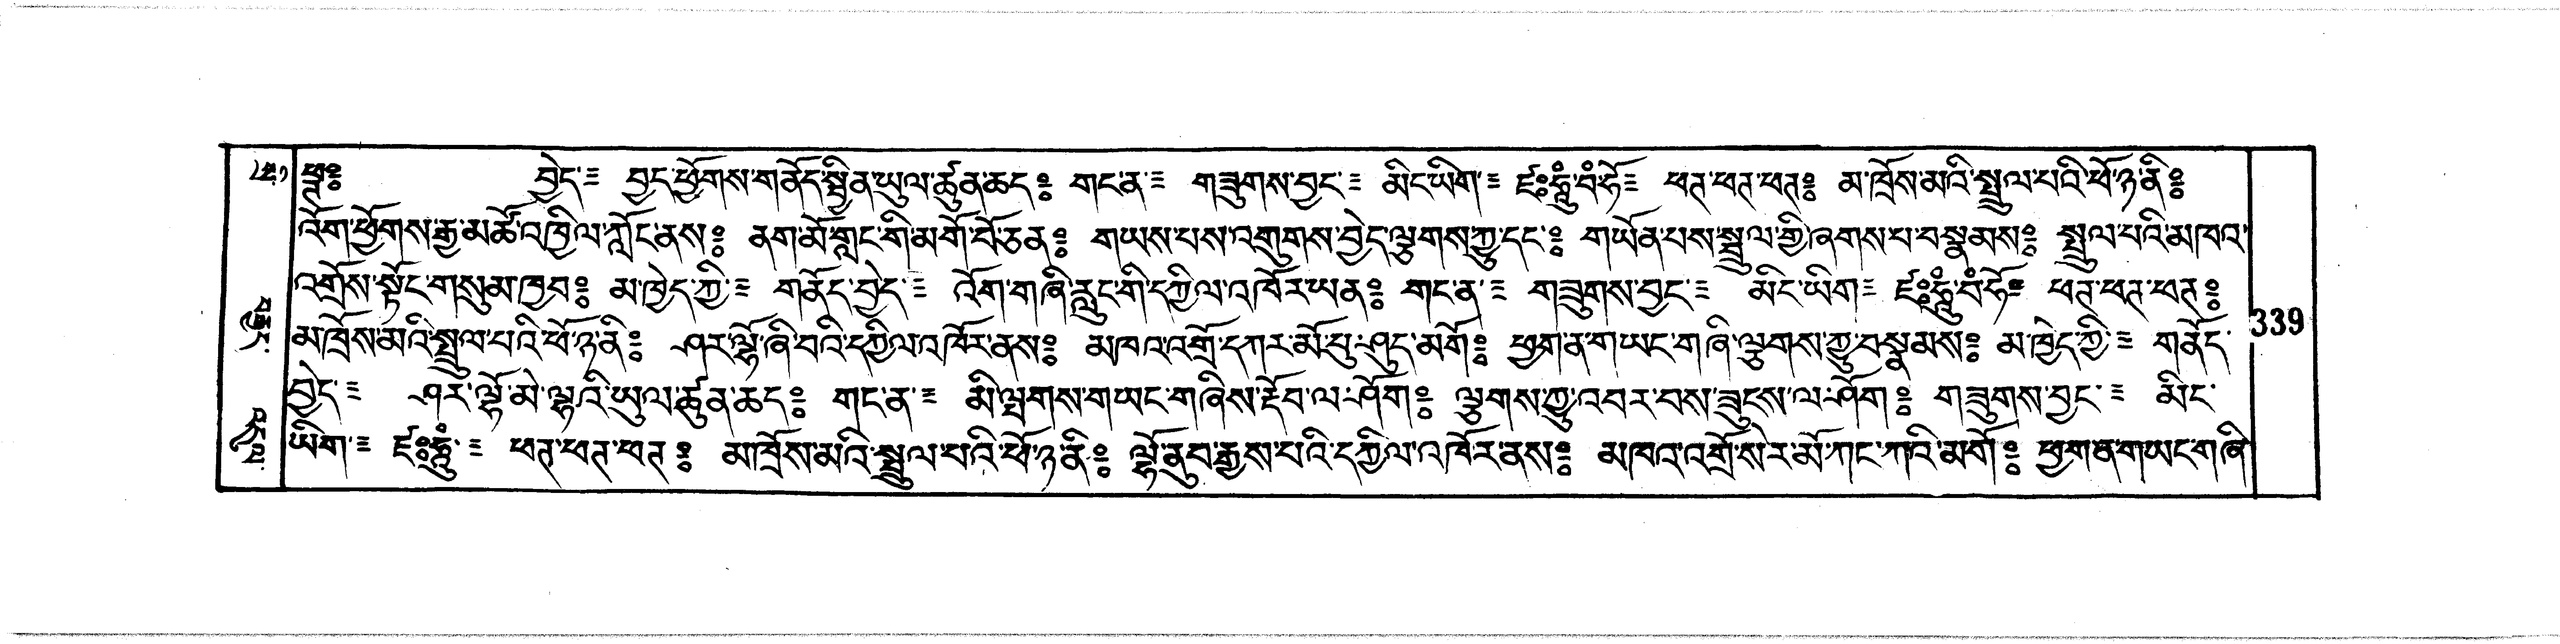 ཕྲ༔ བྱེད་༔ བྱང་ཕྱོགས་གནོད་སྦྱིན་ཡུལ་ཚུན་ཆད༔ གང་ན་༔ གཟུགས་བྱང་༔ མིང་ཡིག་༔ ཛ༔ཧཱུྃ་བཾ་ཧོ༔ ཕཊ་ཕཊ་ཕཊ༔ མ་ཁྲོས་མའི་སྤྲུལ་པའི་ཕོ་ཉ་ནི༔
འོག་ཕྱོགས་རྒྱ་མཚོ་འཁྱིལ་ཀློང་ནས༔ ནག་མོ་གླང་གི་མགོ་བོ་ཅན༔ གཡས་པས་འགུགས་བྱེད་ལྕགས་ཀྱུ་དང་༔ གཡོན་པས་སྦྲུལ་གྱི་ཞགས་པ་བསྣམས༔ སྤྲུལ་པའི་མཁའ་
འགྲོས་སྟོང་གསུམ་ཁྱབ༔ མ་ཁྱེད་ཀྱི་༔ གནོད་བྱེད་༔ འོག་གཞི་རླུང་གི་དཀྱིལ་འཁོར་ཡན༔ གང་ན་༔ གཟུགས་བྱང་༔ མིང་ཡིག༔ ཛ༔ཧཱུྃ་བཾ་ཧོ༔ ཕཊ་ཕཊ་ཕཊ༔
མ་ཁྲོས་མའི་སྤྲུལ་པའི་ཕོ་ཉ་ནི༔ ཤར་ལྷོ་ཞི་བའི་དཀྱིལ་འཁོར་ནས༔ མཁའ་འགྲོ་དཀར་མོ་པུ་ཤུད་མགོ༔ ཕྱག་ན་གཡང་གཞི་ལྕགས་ཀྱུ་བསྣམས༔ མ་ཁྱེད་ཀྱི་༔ གནོད་
བྱེད་༔ ཤར་ལྷོ་མེ་ལྷའི་ཡུལ་ཚུན་ཆད༔ གང་ན་༔ མི་ལྤགས་གཡང་གཞིས་རྡེབ་ལ་ཤོག༔ ལྕགས་ཀྱུ་འབར་བས་ཟུངས་ལ་ཤོག༔ གཟུགས་བྱང་༔ མིང་
ཡིག་༔ ཛ༔ཧཱུྃ་༔ ཕཊ་ཕཊ་ཕཊ༔ མ་ཁྲོས་མའི་སྤྲུལ་པའི་ཕོ་ཉ་ནི༔ ལྷོ་ནུབ་རྒྱས་པའི་དཀྱིལ་འཁོར་ནས༔ མཁའ་འགྲོ་སེར་མོ་ཀང་ཀའི་མགོ༔ ཕྱག་ན་གཡང་གཞི
339